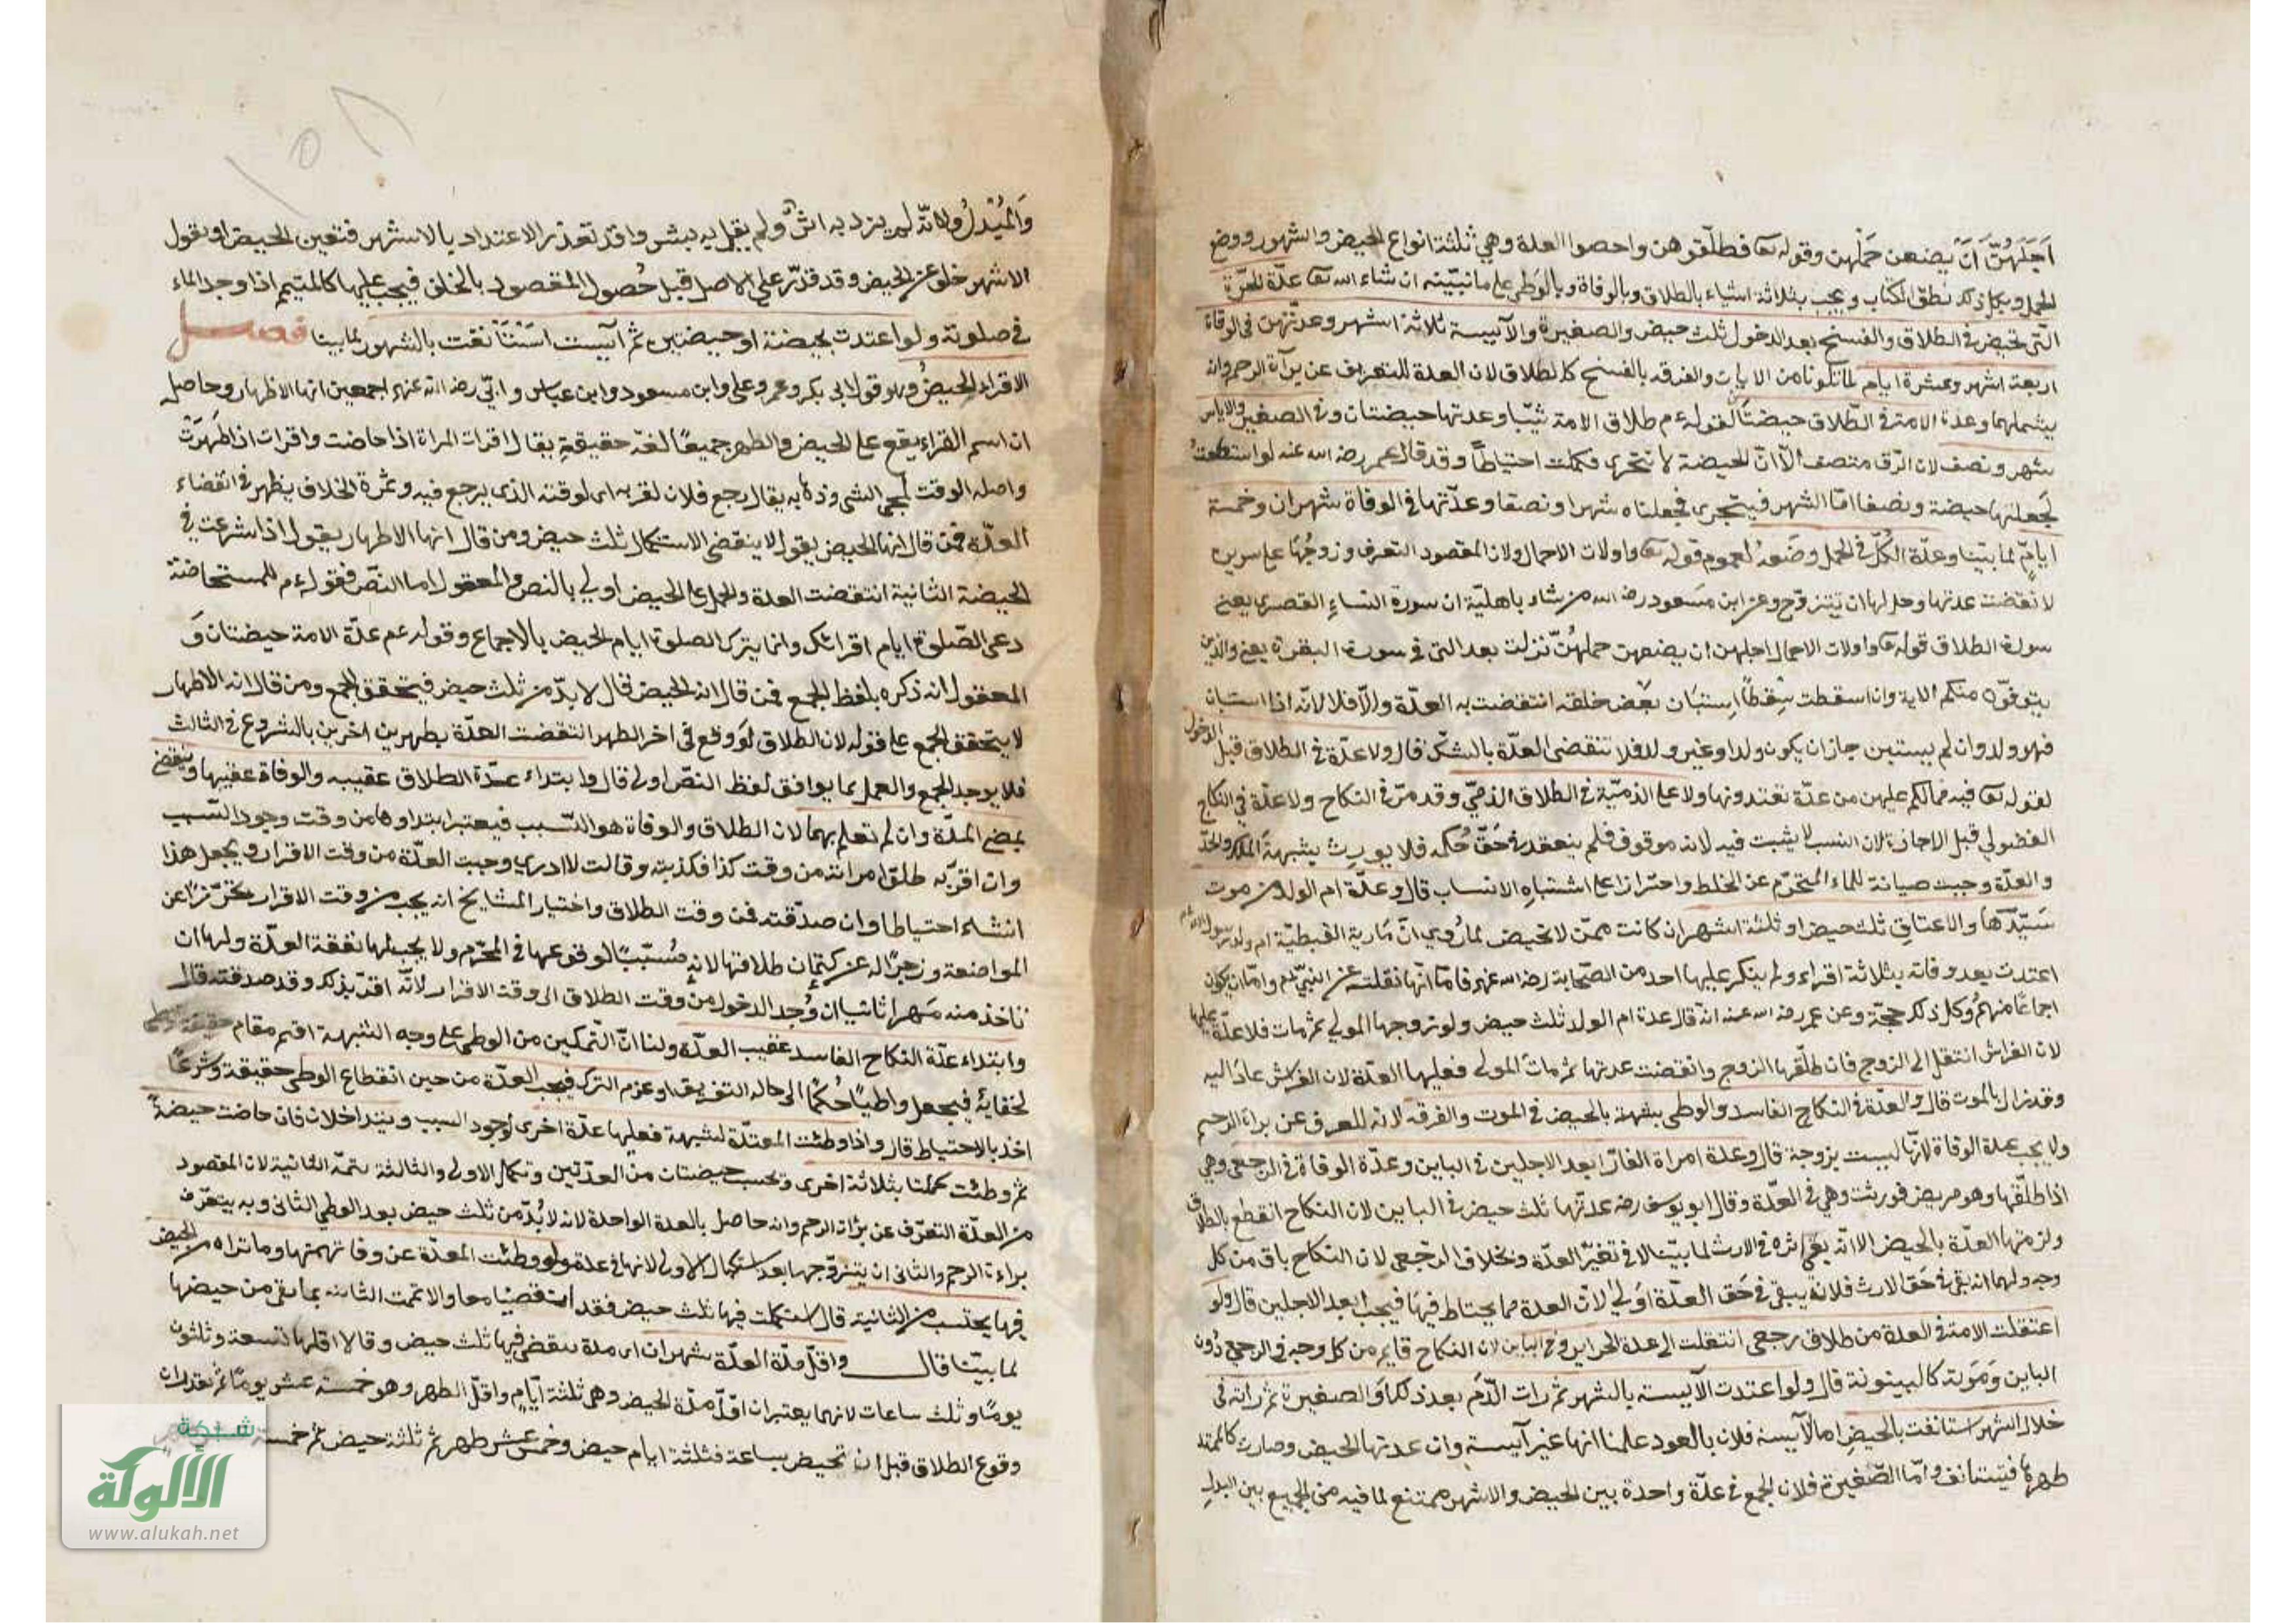 اَجَلَهُنَّ اَنْ يضعن حَمْلَهن وقوله تعا فطلّقوهن واحصوا العدة وهي ثلثة انواع الحيض والشهور ووضع
الحمل وبكل ذلك نطق الكتاب ويجب بثلاثة اشياء بالطلاق وبالوفاة وبالوَطئ على ما نبيّنه ان شاء الله تعا عدّة الحرّة
التّى تحيض فى الطلاق والفسخ بعد الدخول ثلث حيض والصغيرة والآييسة ثلاثة اشهر وعدتهن فى الوفاة
اربعة اشهر وعشرة ايام لما تلونا من الايات والفرقه بالفسخ كالطلاق لان العدة للتعريف عن برآة الرحم وانه
يشملهما وعدة الامة فى الطّلاق حيضتان لقوله ءم طلاق الامة ثنتان وعدتها حيضتان وفى الصغير والاياس
شهر ونصف لان الرّق منصف الّا انّ الحيضة لا تتجزى فكملت احتياطاً وقد قال عمر رضه الله عنه لو استطعتُ
لَجعلتها حيضة ونصفا امّا الشهر فيتجزى فجعلناه شهرا ونصفا وعدّتها فى الوفاة شهران وخمسة
ايامٍ لما بيّنا وعدّة الكُلّ فى الحمل وضَعه لعموم قوله تعا واولات الاحمال ولان المقصود التعرف وزوجُها على سريره
لا نقضت عدتها وحل لها ان تتزوّج وعن ابن مَسعود رضه الله من شاء باهلته ان سورة النساءِ القصرى يعنى
سورة الطلاق قوله تعا واولات الاحمال اجلهن ان يضعهن حملهُنّ نزلت بعد التى فى سورة البقرة يعنى والذين
يتوفّون منكم الاية وان اسقطت سِقطاً اِستبَان بعض خلقه انقضت به العدّة والّا فلا لانّه اذا استبان
فهو ولد وان لم يستبن جاز ان يكون ولدا وغير ولد فلا تنقضى العدّة بالشكّ قال ولا عدّة فى الطلاق قبل الدخول
لقوله تعا فيه فمالكم عليهن من عدّة تعتدونها ولا على الذميّة فى الطلاق الذميّ وقد مرّ فى النكاح ولا عدّة فى النكاح
الفضولي قبل الاجازة لان النسب لا يثبت فيه لانه موقوف فلم ينعقد فى حَقّ حُكمه فلا يورث شبهةَ الملك والحلّ
والعدّة وجبت صيانة للماء المحترم عن الخلط واحترازا عن اشتباهِ الانساب قال وعدّة ام الولد من موت
سَيّدَها والاعتاق ثلث حيض او ثلثة اشهر ان كانت ممّن لا تحيض لما رُوي انّ مَارية القبطيّة ام ولد رسول الله ءم
اعتدت بعد وفاته بثلاثة اقراء ولم ينكر عليها احد من الصّحابة رضه الله عنهم فامّا انّها نقلته عن النبيّ ءم وامّا ان يكون
اجماعًا منهمُ وكل ذلك حجّة وعن عمر رضه الله عنه انّه قال عدة ام الولد ثلث حيض ولو زوجها المولي ثم مات فلا عدّة عليها
لان الفراش انتقل الى الزوج فان طلّقها الزوج وانقضت عدتها ثم ماتَ المولى فعليها العدّة لان الفراش عادَ اليه
وقد زال بالموت قال والعدّة فى النكاح الفاسد والوطى بشبهة بالحيض فى الموت والفرقه لانه للتعرف عن براءة الرحم
ولا يجب عدة الوفاة لانّها ليست بزوجة قال وعدة امراة الفارّ ابعد الاجلين فى الباين وعدّة الوفاة فى الرجعى وهى
اذا طلّقها وهو مريض فورثت وهى فى العدّة وقال ابو يوسف رضه عدتّها ثلث حيض فى الباين لان النكاح انقطع بالطلاق
ولزمتها العدّة بالحيض الا انّه بقي اثره فى الارث لما بيّنا لا فى تغيّر العدّة وبخلاف الرجعى لان النكاح باق من كل
وجه ولهما انه بقى فى حَق الارث فلانّه يبقى فى حَق العدّة اَولى لانّ العدة مما يحتاط فيها فيجب ابعد الاجلين قال ولو
اعتقلت الامة فى العدة من طلاق رجعى انتقلت الى عدة الحراير وفى الباين لا لان النكاح قايم من كل وجه فى الرجعى دُون
الباين وَمَوته كالبينونة قال ولو اعتدت الآييسة بالشهر ثم رات الدّم بعد ذلك اَو الصغيرة ثم راته فى
خلال الشهر استانفت بالحيض اما الآييسة فلان بالعود علمنا انها غير آييسة وان عدتها الحيض وصارت كالممتد
طهرها فيستانف وامّا الصّغيرة فلان الجمع فى عدّة واحدة بين الحيض والاشهر ممتنع لما فيه من الجميع بين البدلِ
وَالمُبْدلُ ولانّه لم يرد به اثرٌ ولم يقل به بشر واقد تعذر الاعتداد بالاشهر فتعين الحيض او نقول
الاشهر خلف عن الحيض وقد قدرّ على الاصل قبل حُصول المقصود بالخلف فيجب عليها كالمتيمم اذا وجد الماء
فى صلوته ولو اعتدت بحيضة او حيضتين ثم آيست اسْتَأنفت بالشهور لما بينا فصل
الاقراء الحيضُ وهو قول ابى بكر وعمر وعلى وابن مسعود وابن عباس وابيّ رضه الله عنهم اجمعين انها الاظهار وحاصل
ان اسم القراء يقع على الحيض والطهر جميعًا لغة حقيقةٍ يقال اقرات المراة اذا حاضت واقرات اذا طَهرَتْ
واصله الوقت لمجى الشى وذهابه يقال رجع فلان لقربه اى لوقته الذى يرجع فيه وثمرة الخلاف يظهر فى انقضاء
العدّة فمن قال انها الحيض يقول لا ينقضى الا باستكمال ثلث حيض ومن قال انها الاطهار يقول اذا شرعت فى
الحيضة الثانية انقضت العدة والحمل على الحيض اولى بالنص والمعقول اما النّص فقوله ءم للمستحاضة
دعى الصّلوة ايام اقرائك وانما يترك الصلوة ايام الحيض بالاجماع وقوله ءم عدّة الامة حيضتان وَ
المعقول انه ذكره بلفظ الجمع فمن قال انه الحيض قال لا بدّ من ثلث حيض فيتحقق الجمع ومن قال انه الاظهار
لا يتحقق الجمع على قوله لان الطلاق لَو وقع فى اخر الطهر انقضت العدّة بطهرين اخرين بالشروع فى الثالث
فلا يوجد الجمع والعمل بما يوافق لفظ النصّ اولى قال وابتداء عدّة الطلاق عقيبه والوفاة عقيبها وينقضى
بمضى المدّة وان لم تعلم بهما لان الطلاق والوفاة هو السّبب فيعتبر ابتداوها من وقت وجود السّبب
وان اقرّ به طلق امراته من وقت كذا فكذبته وقالت لا ادرى وجبت العدّة من وقت الاقرار ويجعل هذا
انشاء احتياطا وان صدّقته فمن وقت الطلاق واختيار المشايخ انه يجب من وقت الاقرار تحرّزًا عن
المواضعة وزجرًا له عن كتمان طلاقها لانه مُسبّبًا لوقوعها فى المحرّم ولا يجب لها نفقة العدّة ولها ان
تاخذ منه مَهرا ثانيا ان وُجد الدخول من وقت الطلاق الى وقت الاقرار لانّه اقرّ بذلك وقد صدقته قال
وابتداء عدّة النكاح الفاسد عقيب العدّة ولنا انّ التّمكين من الوطى على وجه الشبهة اقيم مقام حقيقة
لخفائه فيجعل واطيًا حُكمًا الى حالة التفريق او عزم الترك فيجب العدّة من حين انقطاع الوطى حقيقة وشرعًا
اخذ بالاحتياط قال واذا وطئت المعتدّة لشبهة فعليها عدّة اخرى لوجود السبب ويتداخلان فان حاضت حيضةً
ثم وطئت كملتا بثلاثة اخرى وتحسب حيضتان من العدّتين وتكمل الاولى والثالثة تتمّة الثانية لان المقصود
من العدّة التعرّف عن برأة الرحم وانه حاصل بالعدة الواحدة لانه لا بُدّ من ثلث حيض بعد الوطي الثانى وبه يتعرّف
براءة الرحم والثانى ان يتزوّجها بعد استكمال الاولى لانها فى عدة ولو وطئت المعدّة عن وفاة تممتها وما تراه من الحيض
فيها يحتسب من الثانية قال استكملت فيها ثلث حيض فقد انقضيا معا والا تممت الثانيه بما بقى من حيضها
لما بيّنا قال واقلّ مدّة العدّة شهران اى مدة ينقضى فيها ثلث حيض وقالا اقلها تسعة وثلثون
يومًا وثلث ساعات لانهما يعتبران اقلّ مدّة الحيض وهى ثلثة ايّام واقلّ الطهر وهو خمسة عشر يومًا ثم تقدران
وقوع الطلاق قبل ان تحيض بساعة فثلثة ايام حيض وخمس عشر طهر ثم ثلثة حيض ثم خمسة
شبكة
الألوكة
www.alukah.net